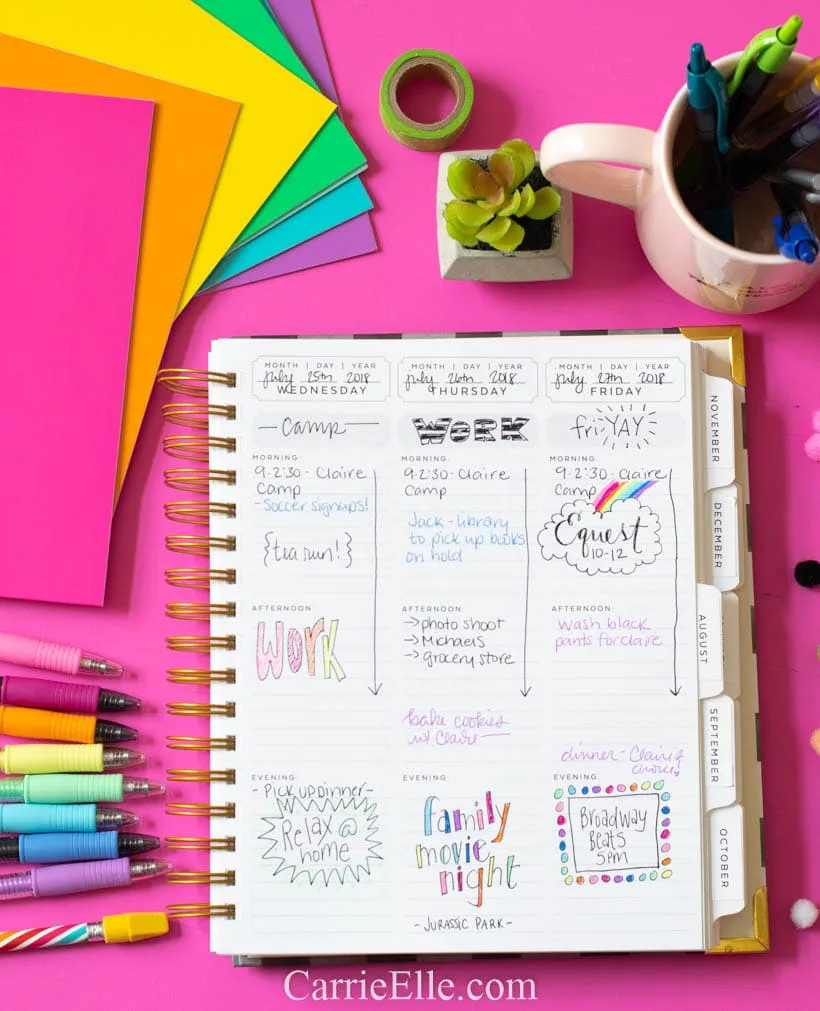 MONTH | DAY | YEAR
July 25th 2018
WEDNESDAY
- Camp -
MORNING
9-2:30 - Claire
Camp
- Soccer signups!
{tea run!}
AFTERNOON
WORK
EVENING
- Pick up dinner -
Relax @
home
MONTH | DAY | YEAR
July 26th 2018
THURSDAY
WORK
MORNING
9-2:30 - Claire
Camp
Jack - library
to pick up books
on hold
AFTERNOON
→ photo shoot
→ Michaels
→ grocery store
bake cookies
w/ Claire
EVENING
family
movie
night
- JURASSIC PARK -
MONTH | DAY | YEAR
July 27th 2018
FRIDAY
fri YAY
MORNING
9-2:30 - Claire
Camp
Equest
10-12
AFTERNOON
wash black
pants for claire
dinner - Claire's
choice!
EVENING
Broadway
Beats
5pm
NOVEMBER
DECEMBER
AUGUST
SEPTEMBER
OCTOBER
CarrieElle.com